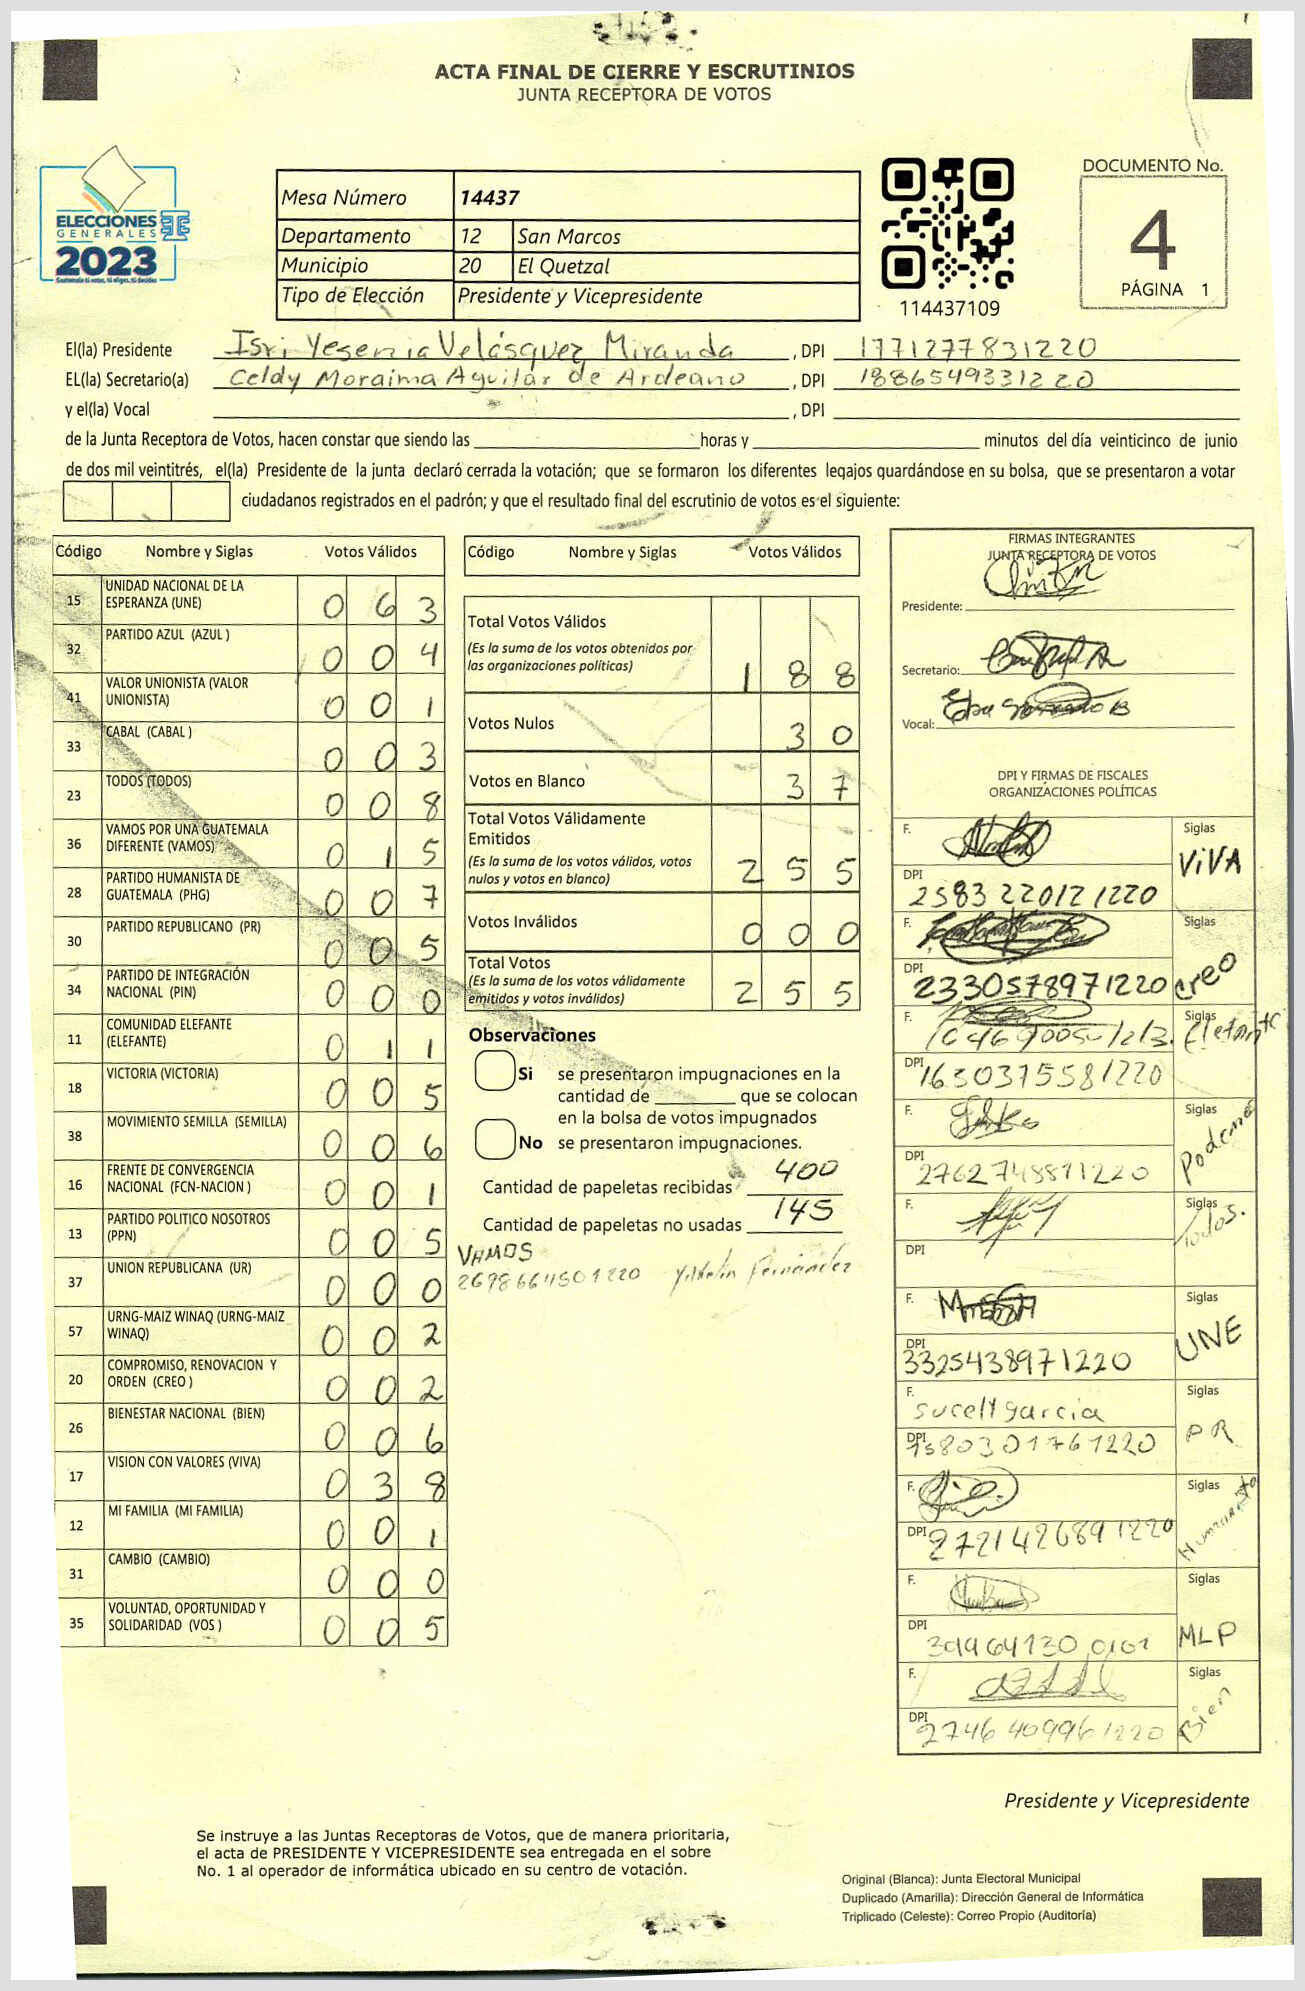 ACTA FINAL DE CIERRE Y ESCRUTINIOS
JUNTA RECEPTORA DE VOTOS
ELECCIONES
GENERALES
2023
Mesa Número 14437
Departamento 12 San Marcos
Municipio 20 El Quetzal
Tipo de Elección Presidente y Vicepresidente
114437109
DOCUMENTO No.
4
PÁGINA 1
El(la) Presidente Isri Yesenia Velásquez Miranda, DPI 1771277831220
EL(la) Secretario(a) Celdy Moraima Aguilar de Ardeano, DPI 1886549331220
y el(la) Vocal , DPI
de la Junta Receptora de Votos, hacen constar que siendo las horas y minutos del día veinticinco de junio
de dos mil veintitrés, el(la) Presidente de la junta declaró cerrada la votación; que se formaron los diferentes legajos quardándose en su bolsa, que se presentaron a votar
ciudadanos registrados en el padrón; y que el resultado final del escrutinio de votos es el siguiente:
Código Nombre y Siglas Votos Válidos
15 UNIDAD NACIONAL DE LA
ESPERANZA (UNE) 0 6 3
32 PARTIDO AZUL (AZUL ) 0 0 4
41 VALOR UNIONISTA (VALOR
UNIONISTA) 0 0 1
33 CABAL (CABAL ) 0 0 3
23 TODOS (TODOS) 0 0 8
36 VAMOS POR UNA GUATEMALA
DIFERENTE (VAMOS) 0 1 5
28 PARTIDO HUMANISTA DE
GUATEMALA (PHG) 0 0 7
30 PARTIDO REPUBLICANO (PR) 0 0 5
34 PARTIDO DE INTEGRACIÓN
NACIONAL (PIN) 0 0 0
11 COMUNIDAD ELEFANTE
(ELEFANTE) 0 1 1
18 VICTORIA (VICTORIA) 0 0 5
38 MOVIMIENTO SEMILLA (SEMILLA) 0 0 6
16 FRENTE DE CONVERGENCIA
NACIONAL (FCN-NACION ) 0 0 1
13 PARTIDO POLITICO NOSOTROS
(PPN) 0 0 5
37 UNION REPUBLICANA (UR) 0 0 0
57 URNG-MAIZ WINAQ (URNG-MAIZ
WINAQ) 0 0 2
20 COMPROMISO, RENOVACION Y
ORDEN (CREO ) 0 0 2
26 BIENESTAR NACIONAL (BIEN) 0 0 6
17 VISION CON VALORES (VIVA) 0 3 8
12 MI FAMILIA (MI FAMILIA) 0 0 1
31 CAMBIO (CAMBIO) 0 0 0
35 VOLUNTAD, OPORTUNIDAD Y
SOLIDARIDAD (VOS ) 0 0 5
Código Nombre y Siglas Votos Válidos
Total Votos Válidos
(Es la suma de los votos obtenidos por
las organizaciones políticas) 1 8 8
Votos Nulos 3 0
Votos en Blanco 3 7
Total Votos Válidamente
Emitidos
(Es la suma de los votos válidos, votos
nulos y votos en blanco) 2 5 5
Votos Inválidos 0 0 0
Total Votos
(Es la suma de los votos válidamente
emitidos y votos inválidos) 2 5 5
Observaciones
Si se presentaron impugnaciones en la
cantidad de que se colocan
en la bolsa de votos impugnados
No se presentaron impugnaciones.
Cantidad de papeletas recibidas 400
Cantidad de papeletas no usadas 145
VAMOS
2698664501220 Fernández
FIRMAS INTEGRANTES
JUNTA RECEPTORA DE VOTOS
Presidente:
Secretario:
Vocal:
DPI Y FIRMAS DE FISCALES
ORGANIZACIONES POLÍTICAS
F. Siglas
DPI 2583 22012 1220 VIVA
F. Siglas
DPI 2330578971220 creo
F. Siglas
DPI 1650375581220 Elefante
F. Siglas
DPI 2762748811220 Podemo
F. Siglas
DPI Todos.
F. Siglas
DPI 3325438971220 UNE
F. Sucelt García Siglas
DPI 1580301761220 PR
F. Siglas
DPI 2721426891220 Humanista
F. Siglas
DPI 3096413 0 0101 MLP
F. Siglas
DPI 2746 409961220 Bien
Presidente y Vicepresidente
Se instruye a las Juntas Receptoras de Votos, que de manera prioritaria,
el acta de PRESIDENTE Y VICEPRESIDENTE sea entregada en el sobre
No. 1 al operador de informática ubicado en su centro de votación.
Original (Blanca): Junta Electoral Municipal
Duplicado (Amarilla): Dirección General de Informática
Triplicado (Celeste): Correo Propio (Auditoría)